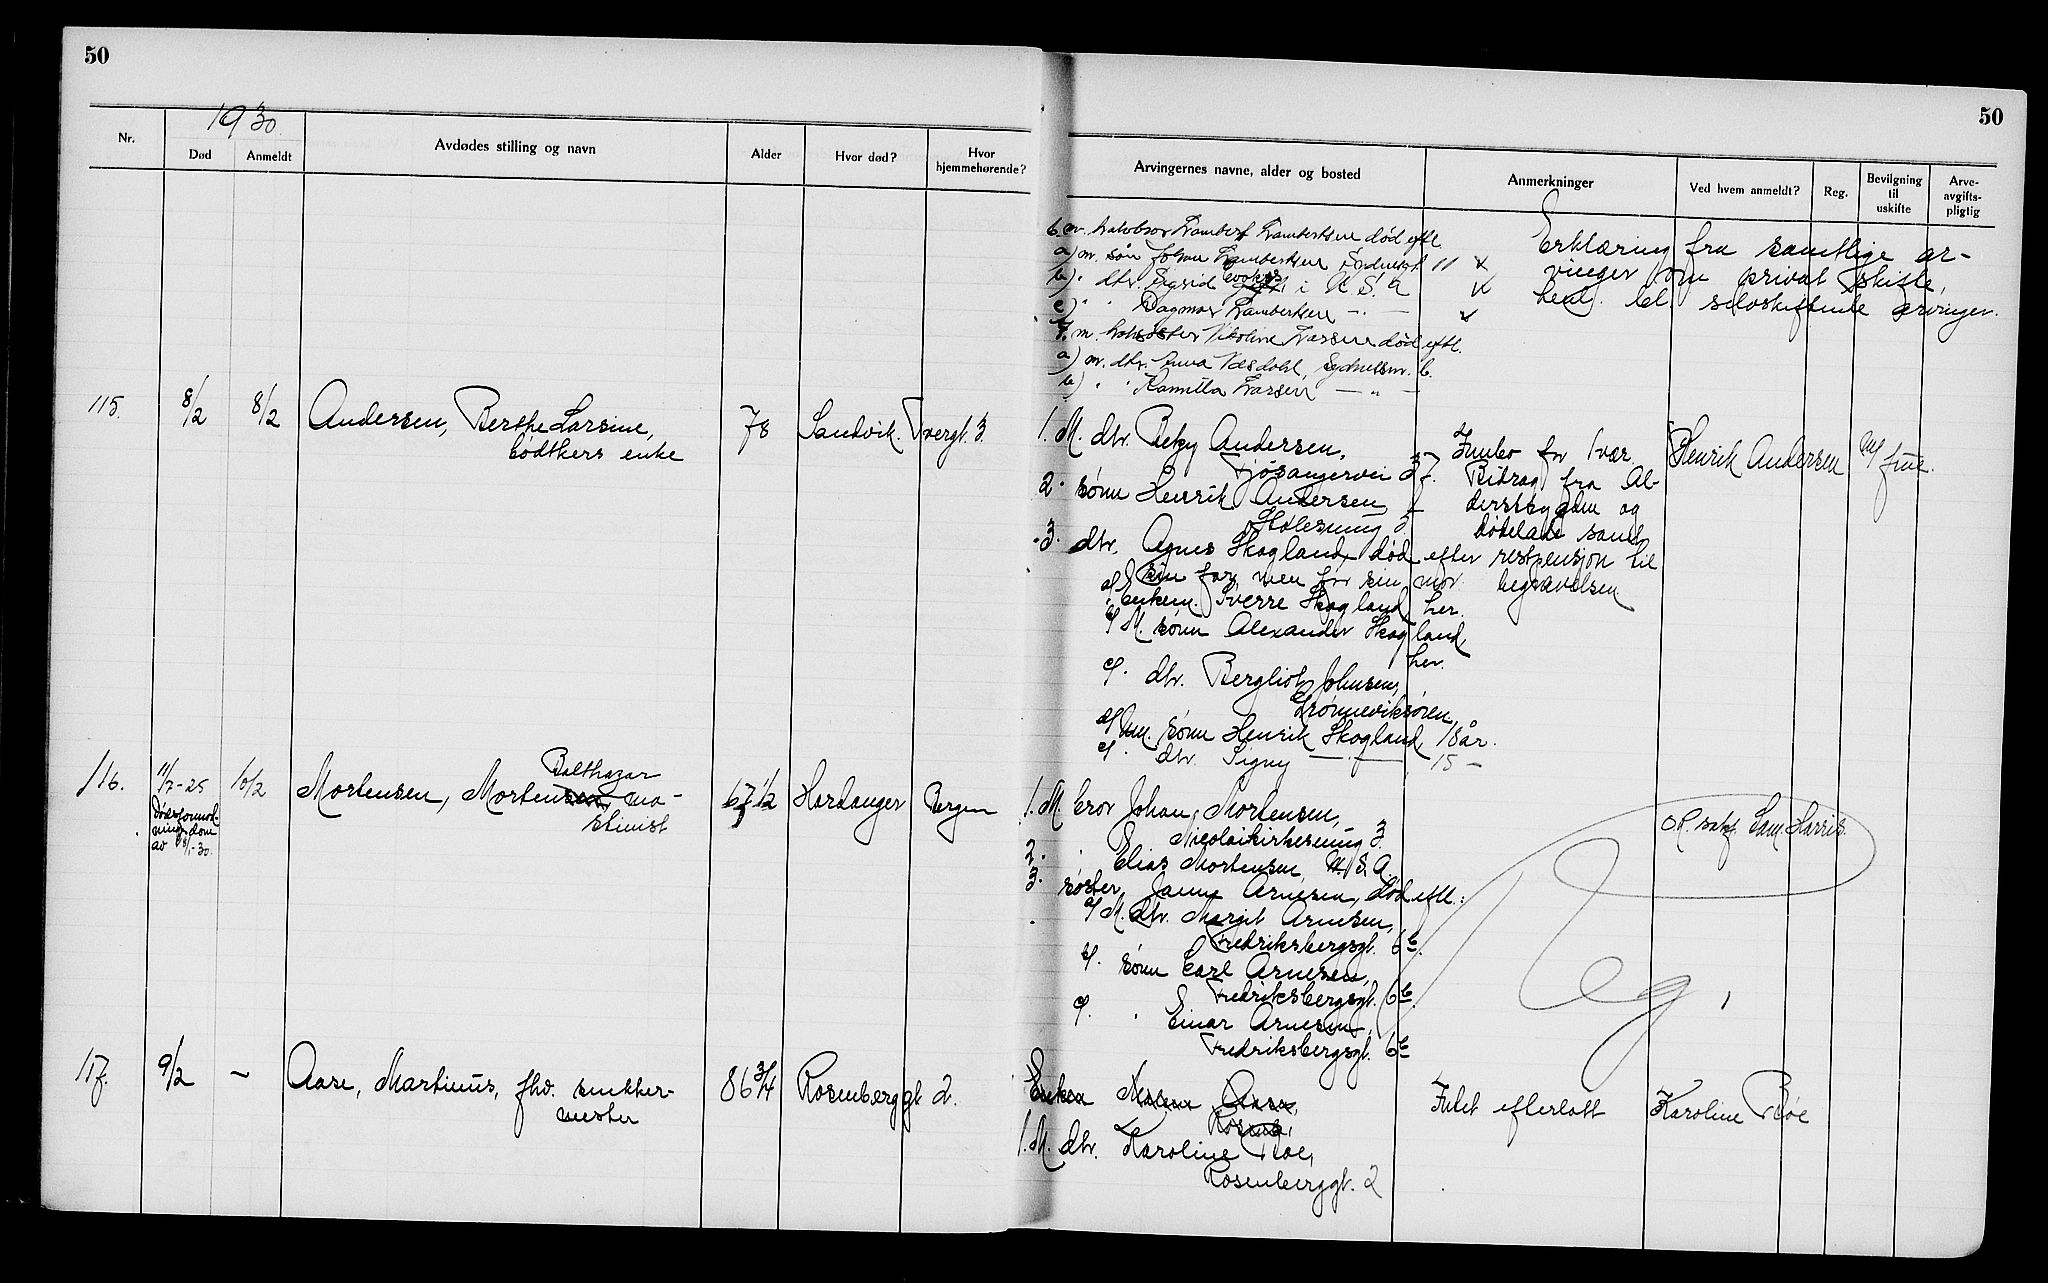 50
50
1930
Nr.
Død
Anmeldt
Avdødes stilling og navn
Alder
Hvor død?
Hvor hjemmehørende?
Arvingernes navne, alder og bosted
Anmerkninger
Ved hvem anmeldt?
Reg.
Bevilgning til uskifte
Arve-avgifts-pligtig
6. m. halvbror Lambert Lambertsen død eftl.
a) m. søn Johan Lambertsen 11
b) " dtr. Sigrid i U.S.A
c) " " Dagmar Lambertsen — " —
7. m. halvsøster Nikoline Larsen død eftl.
a) m. dtr. Anna Sydnessm. 6.
b) " " Kamilla Larsen — " —
Erklæring fra samtlige ar-
vinger om privat skifte,
selvskiftende arvinger.
115.
8/2
8/2
Andersen, Berthe Larsine,
bødkers enke
78
Sandvik.
Tvergt. 3.
1. M. dtr. Betzy Andersen,
Fjøsangervei 37.
2. " sønn Henrik Andersen,
Stølesmug 3
3. dtr. Agnes Skogland, død efter
sin far, men før sin mor.
a/ Enkem. Sverre Skogland, her.
b/ M. sønn Alexander Skogland,
her.
c/ " dtr. Bergliot Johnsen,
Grønneviksøren,
d/ Um. sønn Henrik Skogland, 18 år.
e/ " dtr. Signy — " — 15 —
Innbo for
Bidrag fra Al-
derstrygden og
dødelade samt
restpensjon til
begravelsen
Henrik Andersen
116.
11/7-25
Dødsformod-
nings dom
av 8/1-30.
10/2
Mortensen, Morten Balthazar ma-
skinist
67 1/2
Hardanger
Bergen
1. M. bror Johan Mortensen,
Nicolaikirkesmug 3.
2. " Elias Mortensen, U.S.A.
3. søster, Janna Arnesen, død eftl.:
a/ M. dtr. Margit Arnesen,
Fredriksbergsgt. 6b.
b/ " sønn Carl Arnesen,
Fredriksbergsgt. 6b.
c/ " " Einar Arnesen,
Fredriksbergsgt. 6b
O.R. sakf. Sam. Harris.
117.
9/2
—
Aase, Martinus, fhv. snekker-
mester
86 3/4
Rosenberggt. 2.
Enken
1. M. dtr. Karoline Røe,
Rosenberggt. 2
Intet efterlatt
Karoline Røe